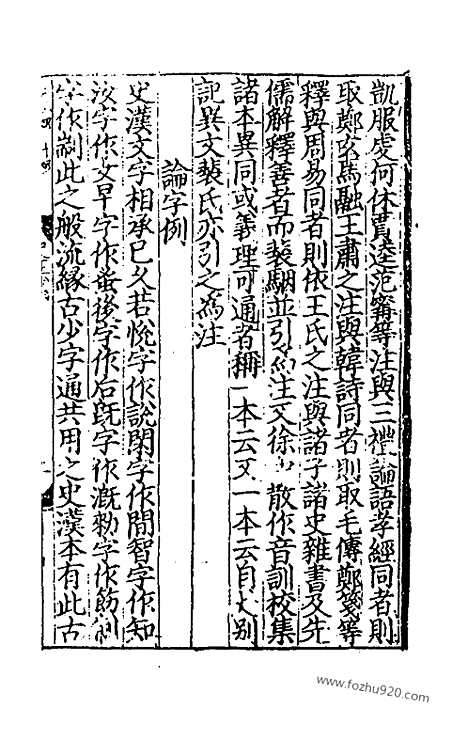 凱服虔何休賈逵范甯等注與三禮論語孝經同者則
取鄭玄馬融王肅之注與韓詩同者則取毛傳鄭箋等
釋與周易同者則依王氏之注與諸子諸史雜書及先
儒解釋善者而裴駰並引為注又徐中散作音訓校集
諸本異同或義理可通者稱一本云又一本云自是別
記異文裴氏亦引之為注
論字例
史漢文字相承已久若悅字作說閑字作閒智字作知
汝字作女早字作蚤後字作后既字作溉勑字作飭制
字作剬此之般流緣古少字通共用之史漢本有此古
www.fozhu920.com